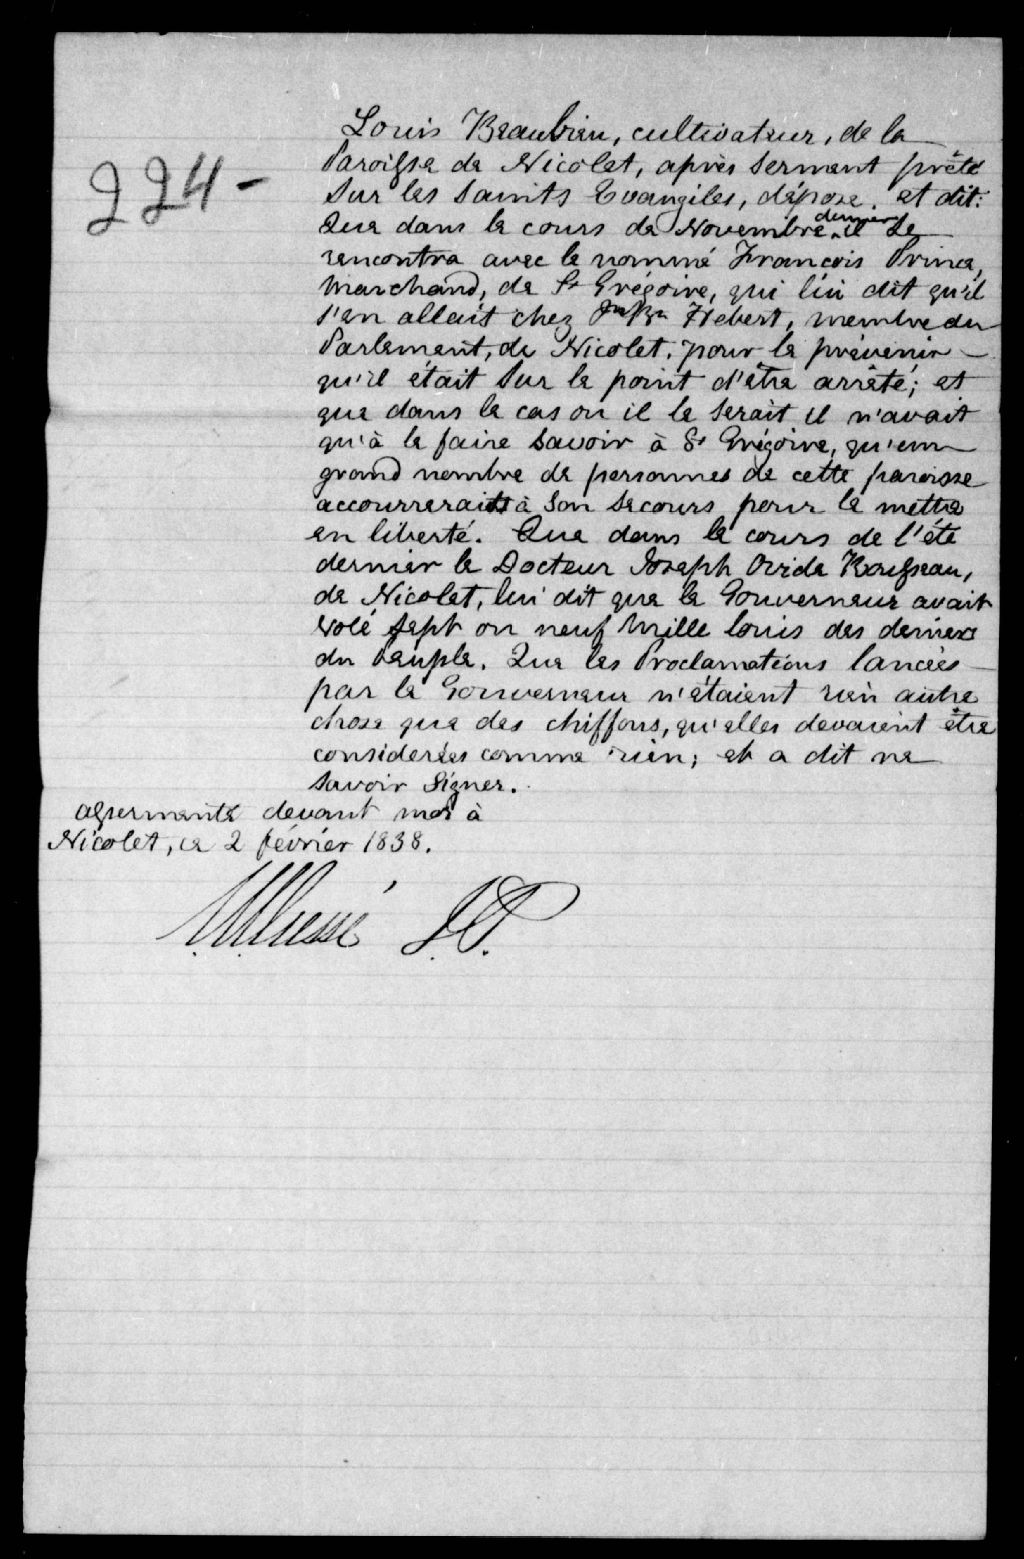 Louis Beaubien, cultivateur, de la
224 -
Paroisse de Nicolet, après serment prêté
sur les Saints Evangiles, dépose, et dit:
Que dans le cours de Novembre dernier il se
rencontra avec le nommé François Prince,
marchand, de St Grégoire, qui lui dit qu'il
s'en allait chez Jn Bte Hebert, membre du
Parlement, de Nicolet, pour le prévenir
qu'il était sur le point d'être arrêté; et
que dans le cas ou il le serait il n'avait
qu'à le faire savoir à St Grégoire, qu'un
grand nombre de personnes de cette paroisse
accourreraient à son secours pour le mettre
en liberté. Que dans le cours de l'été
dernier le Docteur Joseph Ovide Rousseau,
de Nicolet, lui dit que le Gouverneur avait
volé sept ou neuf mille louis des deniers
du Peuple. Que les Proclamations lancées
par le Gouverneur n'étaient rien autre
chose que des chiffons, qu'elles devaient être
considerées comme rien; et a dit ne
savoir signer.
assermenté devant moi à
Nicolet, ce 2 février 1838.
J.P.